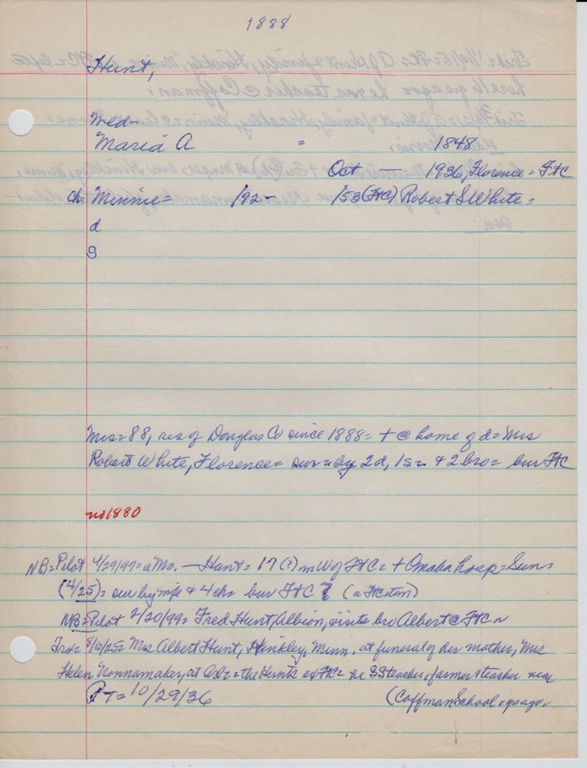 1888
Hunt,
Med-
Maria A " 1848
Oct — 1936, Florence = FtC
ch: Minnie = /92- /53 (FtC) Robert S White =
d
S
Mrs = 88, res of Douglas Co since 1888 = + @ home of d = Mrs
Robert White, Florence = sur = by 2d, 1s = + 2 bro = bur FtC
no 1880
NB = Pilot 4/29/97 = a Mr. — Hunt = 17 (?) m W of FtC = + Omaha Hosp = Sun =
(4/25) = sur by wife & 4 ch = bur FtC ? (a FtC)
NB = Pilot 4/20/99 = Fred Hunt, Albion, visits bro Albert @ FtC
Trib = 8/6/25 = Mrs Albert Hunt, Hinkley, Minn. at funeral of her mother, Mrs
Helen Nonnamaker, at = the Hunts ex FtC = he SS teacher, farmer & teacher near
PT = 10/29/36 (Coffman School = yrs ago =